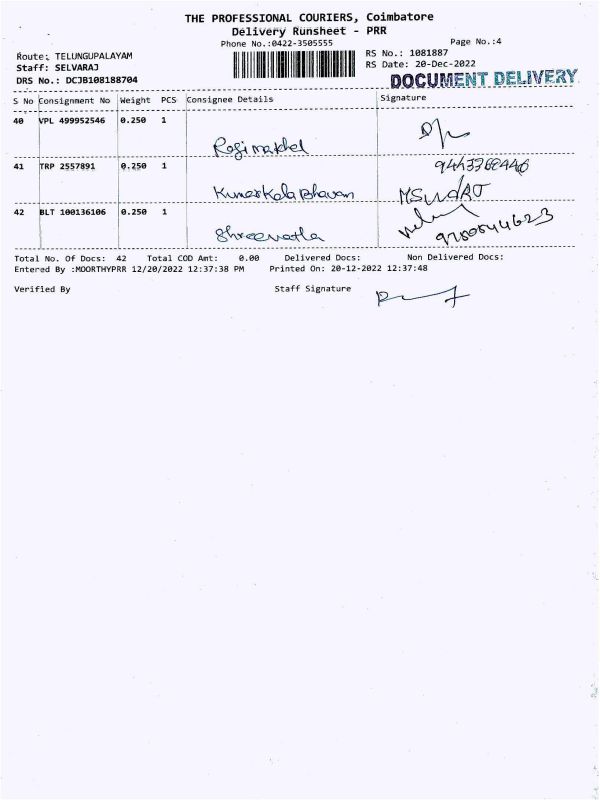 THE PROFESSIONAL COURIERS, Coimbatore
Delivery Runsheet - PRR
Phone No.:0422-3505555 Page No.:4
Route: TELUNGUPALAYAM RS No.: 1081887
Staff: SELVARAJ RS Date: 20-Dec-2022
DRS No.: DCJB108188704 DOCUMENT DELIVERY
S No Consignment No Weight PCS Consignee Details Signature
40 VPL 499952546 0.250 1
41 TRP 2557891 0.250 1
Kumar Kala Bhavan
42 BLT 100136106 0.250 1
Total No. Of Docs: 42 Total COD Amt: 0.00 Delivered Docs: Non Delivered Docs:
Entered By :MOORTHYPRR 12/20/2022 12:37:38 PM Printed On: 20-12-2022 12:37:48
Verified By Staff Signature